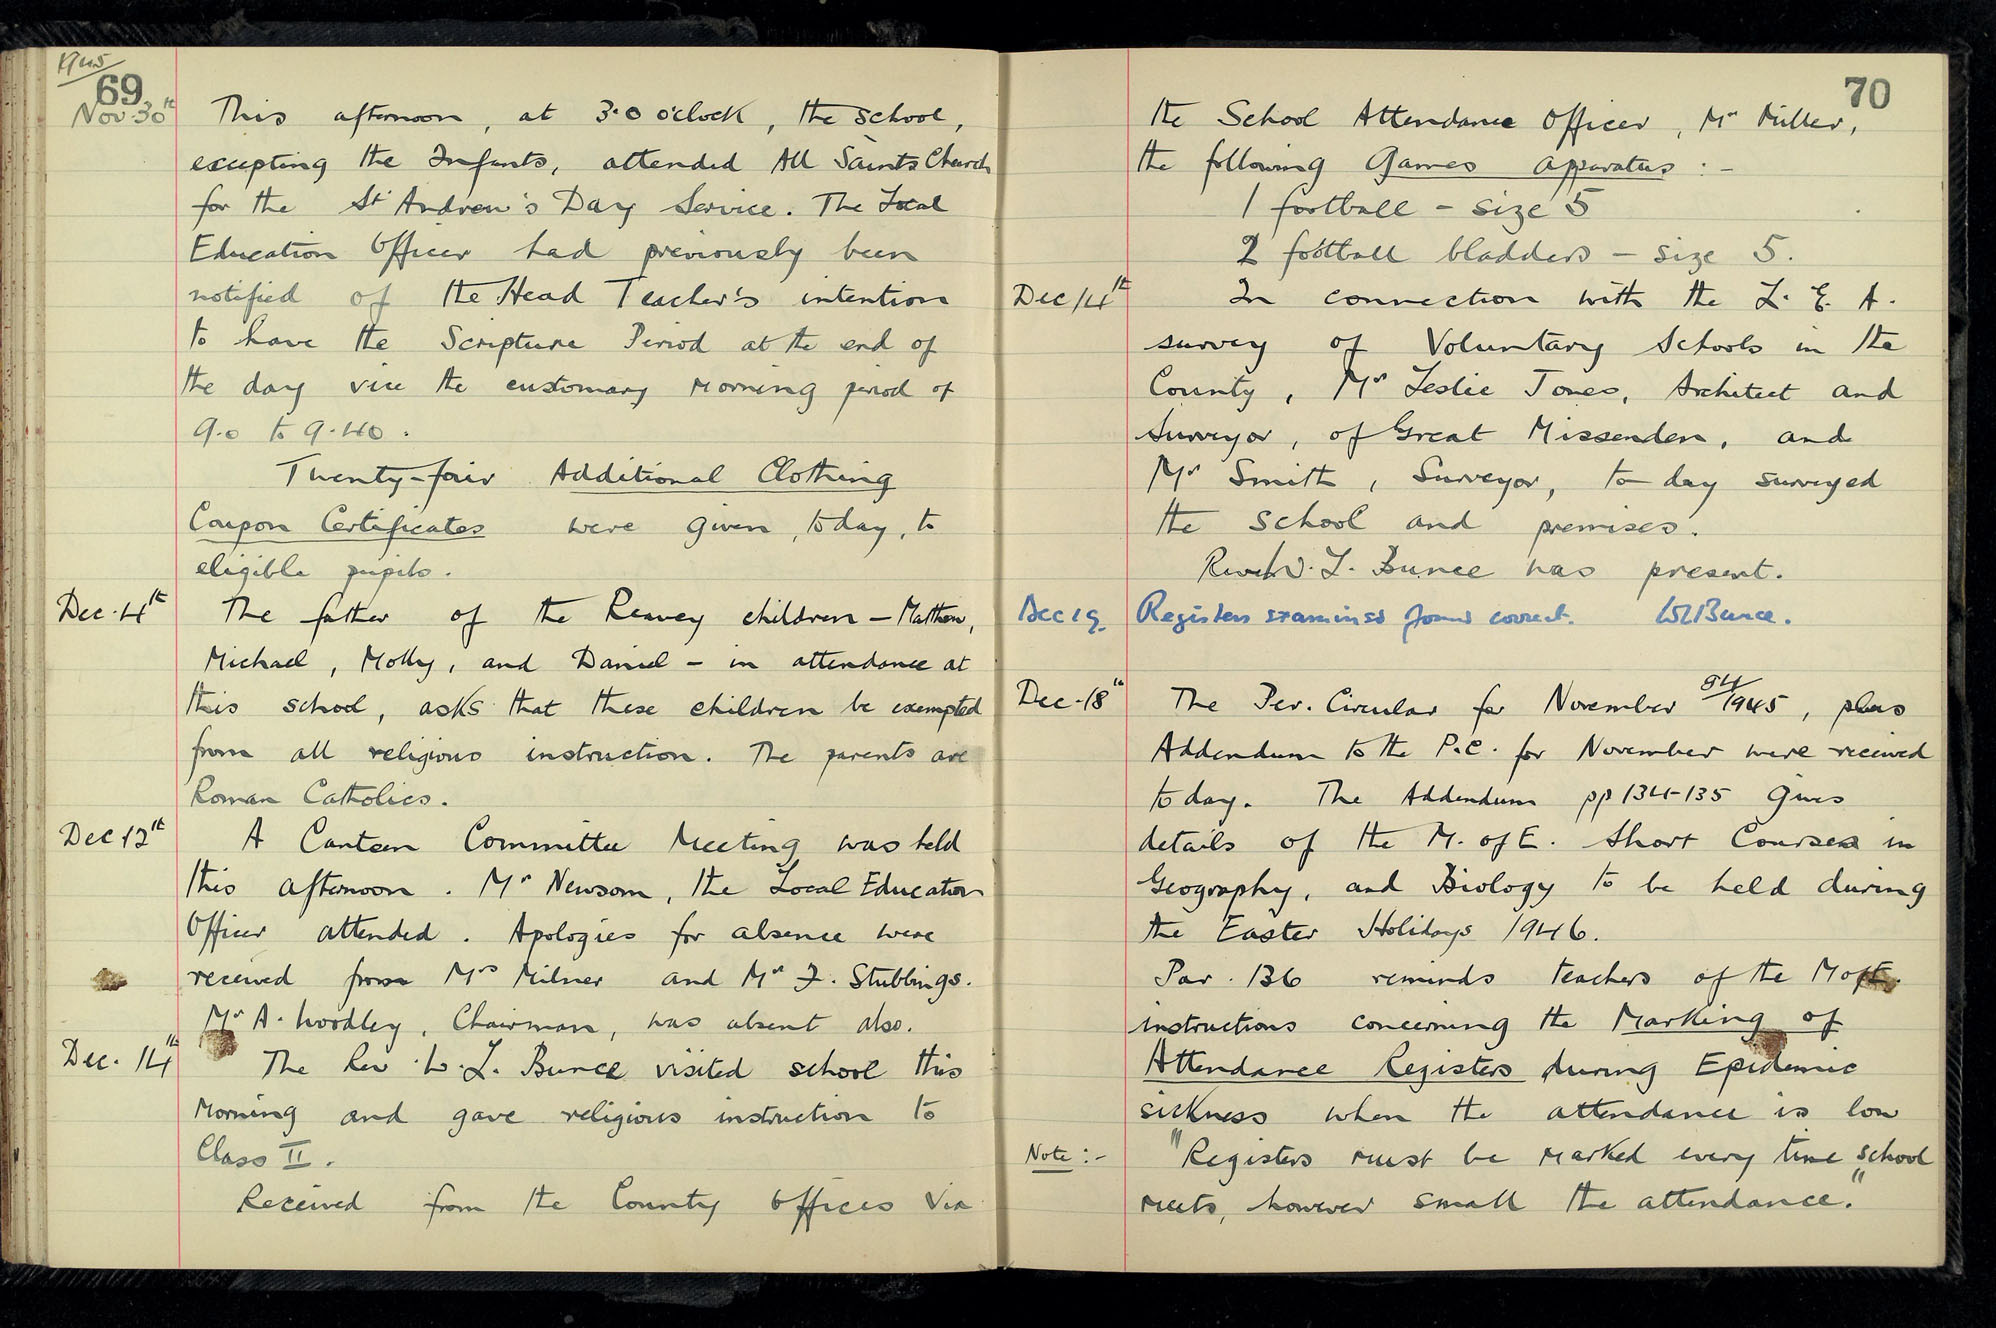 1945
69
Nov. 30th This afternoon, at 3.0 o'clock, the school,
excepting the Infants, attended All Saints Church
for the St Andrew's Day Service. The Local
Education Officer had previously been
notified of the Head Teacher's intention
to have the Scripture Period at the end of
the day vice the customary morning period of
9.0 to 9.40.
Twenty-four Additional Clothing
Coupon Certificates were given, today, to
eligible pupils.
Dec. 4th The father of the Reavey children – Matthew,
Michael, Molly, and Daniel – in attendance at
this school, asks that these children be exempted
from all religious instruction. The parents are
Roman Catholics.
Dec 13th A Canteen Committee Meeting was held
this afternoon. Mr Newsom, the Local Education
Officer attended. Apologies for absence were
received from Mrs Milner and Mr J. Stubbings.
Mr A. Woodley, Chairman, was absent also.
Dec. 14th The Rev W. L. Bunce visited school this
morning and gave religious instruction to
Class II.
Received from the County Offices via
70
the School Attendance Officer, Mr Miller,
the following Games apparatus :-
1 football - size 5
2 football bladders - size 5.
Dec 14th In connection with the L. E. A.
survey of Voluntary Schools in the
County, Mr Leslie Jones, Architect and
Surveyor, of Great Missenden, and
Mr Smith, Surveyor, to-day surveyed
the school and premises.
Rev W. L. Bunce was present.
Dec 19. Registers examined found correct. WLBunce.
Dec. 18th The Per. Circular for November 94/1945, plus
Addendum to the P.C. for November were received
to day. The Addendum pp 134-135 gives
details of the M. of E. Short Courses in
Geography, and Biology to be held during
the Easter Holidays 1946.
Par. 136 reminds teachers of the M of E.
instructions concerning the Marking of
Attendance Registers during Epidemic
sickness when the attendance is low
Note :- "Registers must be marked every time school
meets, however small the attendance."